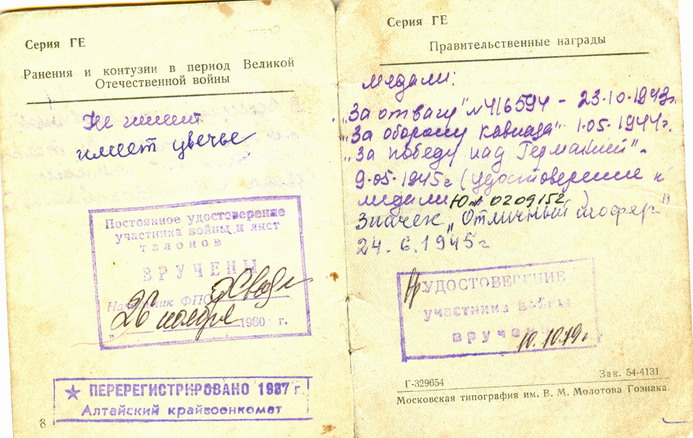 Серия ГЕ
Ранения и контузии в период Великой
Отечественной войны
Не имеет
имеет увечье
Постоянное удостоверение
участника войны и лист
талонов
ВРУЧЕНЫ
Начальник ФПО
26 ноября 1980 г.
★ ПЕРЕРЕГИСТРИРОВАНО 1987 г.
Алтайский крайвоенкомат
8
Серия ГЕ
Правительственные награды
медали:
„За отвагу" №416594 - 23.10.1943г.
„За оборону Кавказа" 1.05-1944г.
„За победу над Германией"-
9.05-1945г (удостоверение к
медали 0209152
Значек „Отличный шофер"
24.6.1945г
УДОСТОВЕРЕНИЕ
участника войны
вручено
10.10.79г.
Г-329654
Зак. 54-4131
Московская типография им. В. М. Молотова Гознака.